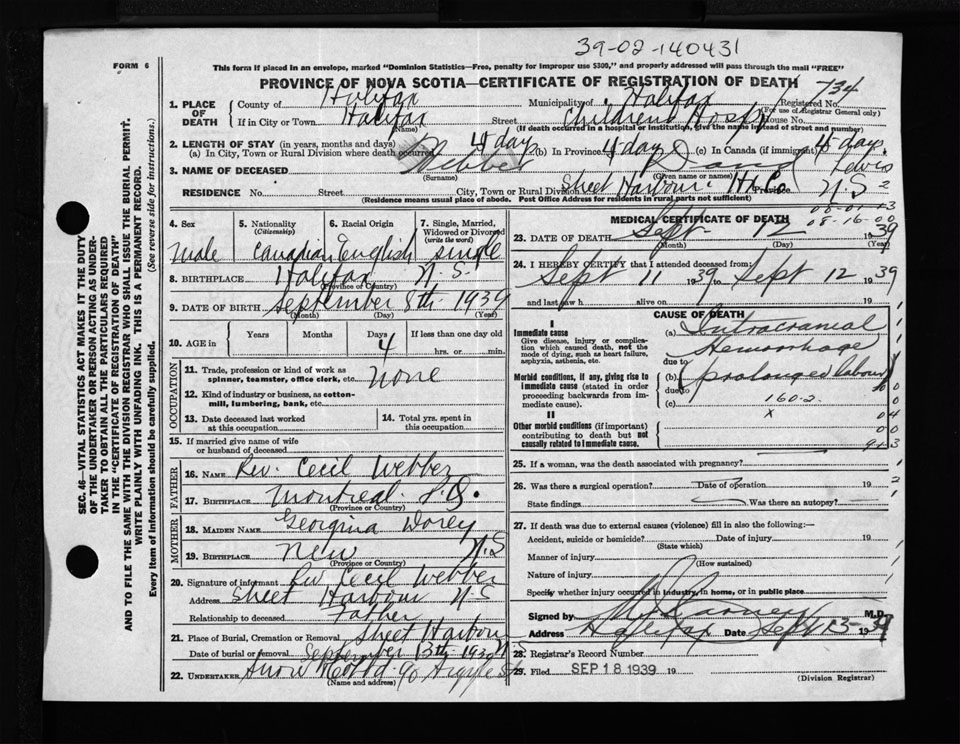 39-02-140431
FORM 6
This form if placed in an envelope, marked "Dominion Statistics—Free, penalty for improper use $300," and properly addressed will pass through the mail "FREE"
PROVINCE OF NOVA SCOTIA—CERTIFICATE OF REGISTRATION OF DEATH
734
1. PLACE OF DEATH
County of Halifax Municipality of Halifax Registered No.
(For use of Registrar General only)
If in City or Town Halifax Street Childrens Hosp House No.
(Name) (If death occurred in a hospital or institution, give the name instead of street and number)
2. LENGTH OF STAY (in years, months and days)
(a) In City, Town or Rural Division where death occurred 4 day (b) In Province 4 day (c) In Canada (if immigrant) 4 day
3. NAME OF DECEASED Webber David Lewis
(Surname) (Given name or names)
RESIDENCE No. Street City, Town or Rural Division Sheet Harbour Hx Co Province N.S 2
(Residence means usual place of abode. Post Office Address for residents in rural parts not sufficient)
4. Sex
Male
5. Nationality
(Citizenship)
Canadian
6. Racial Origin
English
7. Single, Married, Widowed or Divorced
(write the word)
Single
8. BIRTHPLACE Halifax N.S.
(Province or Country)
9. DATE OF BIRTH September 8th 1939
(Month) (Day) (Year)
10. AGE in
Years Months Days 4
If less than one day old
hrs. or min.
OCCUPATION
11. Trade, profession or kind of work as spinner, teamster, office clerk, etc. None
12. Kind of industry or business, as cotton-mill, lumbering, bank, etc.
13. Date deceased last worked at this occupation
14. Total yrs. spent in this occupation
15. If married give name of wife or husband of deceased
FATHER
16. NAME Rev. Cecil Webber
17. BIRTHPLACE Montreal P.Q.
(Province or Country)
MOTHER
18. MAIDEN NAME Georgina Dorey
19. BIRTHPLACE New N.S
(Province or Country)
20. Signature of informant Rev Cecil Webber
Address Sheet Harbour N.S
Relationship to deceased Father
21. Place of Burial, Cremation or Removal Sheet Harbour
Date of burial or removal September 13th 1939
22. UNDERTAKER Snow 90 Argyle St
(Name and address)
MEDICAL CERTIFICATE OF DEATH
23. DATE OF DEATH Sept 12 1939
(Month) (Day) (Year)
24. I HEREBY CERTIFY that I attended deceased from:
Sept 11 1939 Sept 12 1939
and last saw h alive on 19
CAUSE OF DEATH
I
Immediate cause
Give disease, injury or complication which caused death, not the mode of dying, such as heart failure, asphyxia, asthenia, etc.
(a) Intracranial Hemorrhage
due to
Morbid conditions, if any, giving rise to immediate cause (stated in order proceeding backwards from immediate cause).
(b) prolonged labour
due to
(c) 160-2
II
x
Other morbid conditions (if important) contributing to death but not causally related to immediate cause.
25. If a woman, was the death associated with pregnancy?
26. Was there a surgical operation? Date of operation 19
State findings Was there an autopsy?
27. If death was due to external causes (violence) fill in also the following:
Accident, suicide or homicide? Date of injury 19
(State which)
Manner of injury
(How sustained)
Nature of injury
Specify whether injury occurred in industry, in home, or in public place
Signed by M.D.
Address Halifax Date Sept 13 1939
28. Registrar's Record Number
29. Filed SEP 18 1939 19
(Division Registrar)
SEC. 46—VITAL STATISTICS ACT MAKES IT THE DUTY
OF THE UNDERTAKER OR PERSON ACTING AS UNDER-
TAKER TO OBTAIN ALL THE PARTICULARS REQUIRED
IN THE "CERTIFICATE OF REGISTRATION OF DEATH"
AND TO FILE THE SAME WITH THE DIVISION REGISTRAR WHO SHALL ISSUE THE BURIAL PERMIT.
WRITE PLAINLY WITH UNFADING INK. THIS IS A PERMANENT RECORD.
Every item of information should be carefully supplied. (See reverse side for instructions.)